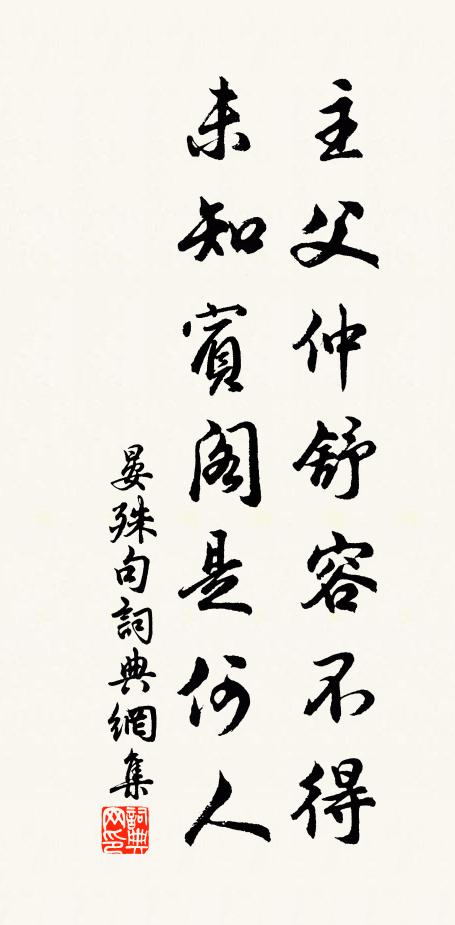 主父仲舒容不得
未知賓閣是何人
晏殊句詞典網集
詞典網印